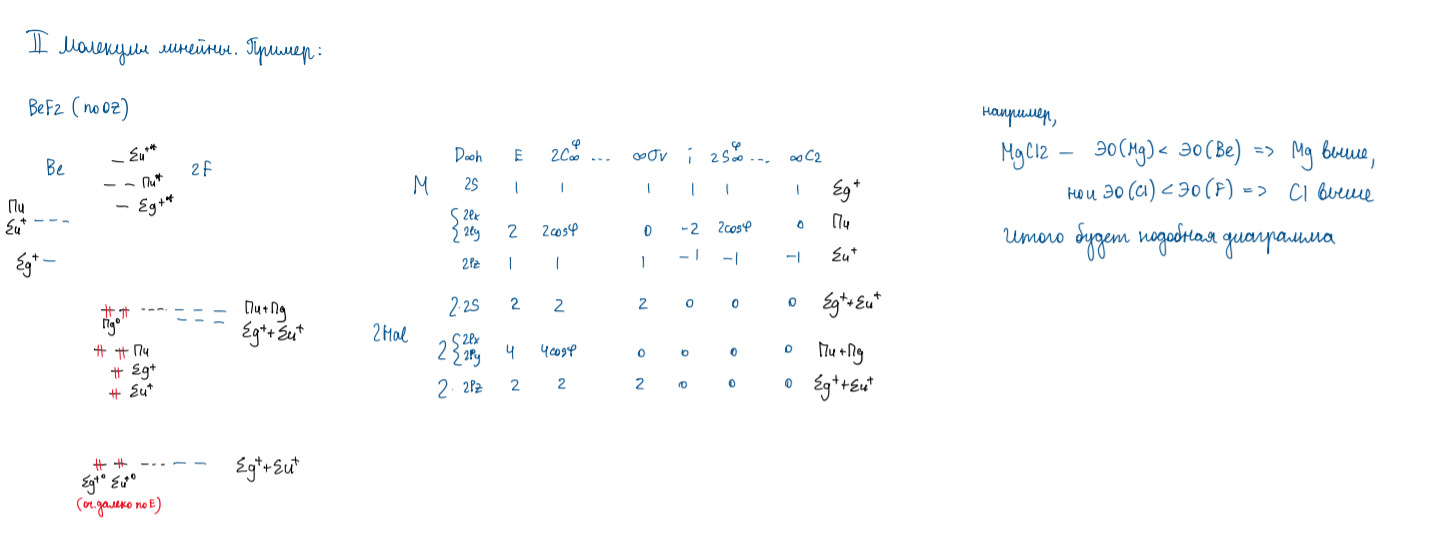 II Молекулы линейны. Пример:
BeF2 (по OZ)
Be Σu+* 2F
Πu*
Σg+*
Πu
Σu+
Σg+
Πu+Πg
Πg⁰ Σg++Σu+
Πu
Σg+
Σu+
Σg++Σu+
Σg+⁰ Σu+⁰
(оч. далеко по E)
D∞h E 2C∞φ ... ∞σv i 2S∞φ ... ∞C2
M 2S 1 1 1 1 1 1 Σg+
{2Px
2Py 2 2cosφ 0 -2 2cosφ 0 Πu
2Pz 1 1 1 -1 -1 -1 Σu+
2·2S 2 2 2 0 0 0 Σg++Σu+
2Hal 2{2Px
2Py 4 4cosφ 0 0 0 0 Πu+Πg
2·2Pz 2 2 2 0 0 0 Σg++Σu+
например,
MgCl2 — ЭО(Mg) < ЭО(Be) => Mg выше,
но и ЭО(Cl) < ЭО(F) => Cl выше
Итого будет подобная диаграмма